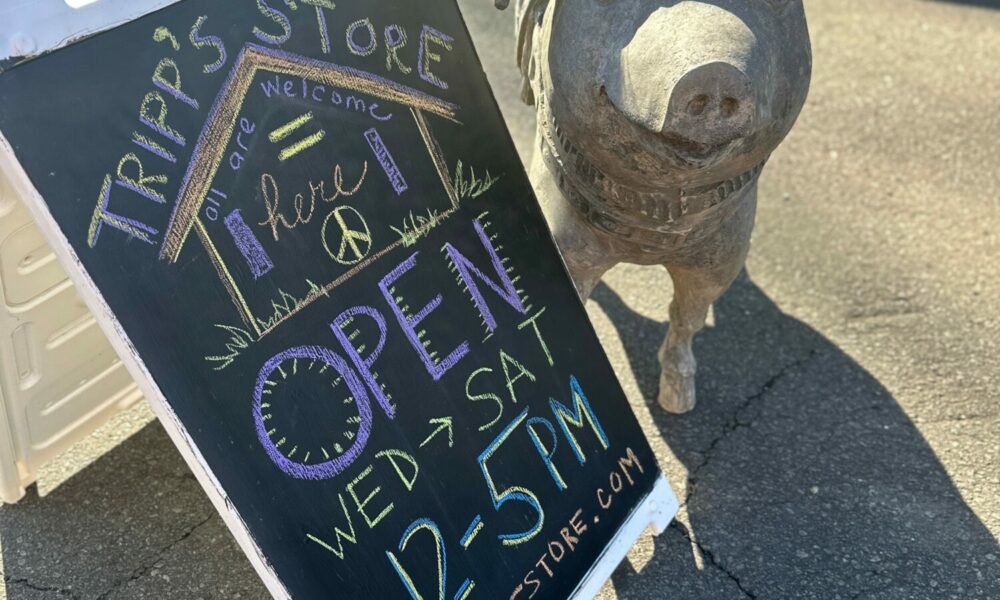 TRIPP'S STORE
all are welcome
=
here
OPEN
WED → SAT
12-5PM
-STORE.COM